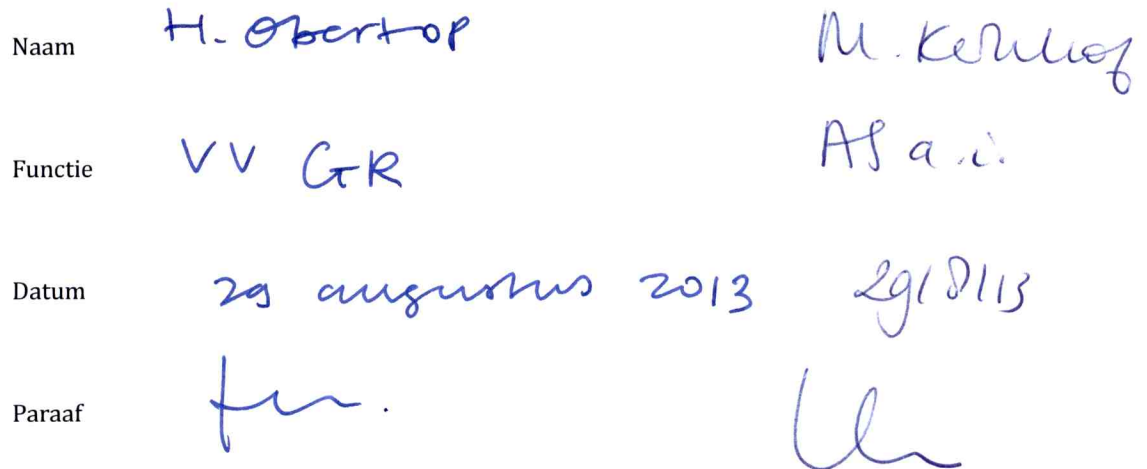 Naam H. Obertop M. Kerkhof
Functie VV GR AS a.i.
Datum 29 augustus 2013 29/8/13
Paraaf